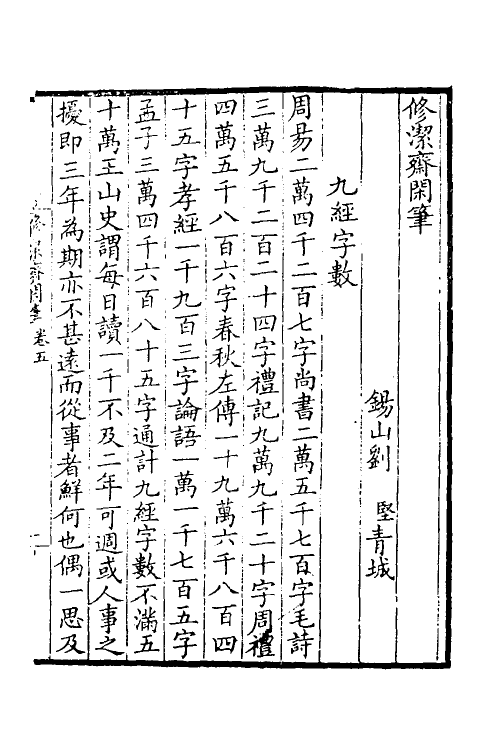 修潔齋閑筆
錫山劉　堅青城
九經字數
周易二萬四千二百七字尚書二萬五千七百字毛詩
三萬九千二百二十四字禮記九萬九千二十字周禮
四萬五千八百六字春秋左傳一十九萬六千八百四
十五字孝經一千九百三字論語一萬一千七百五字
孟子三萬四千六百八十五字通計九經字數不滿五
十萬王山史謂每日讀一千不及二年可週或人事之
擾即三年為期亦不甚遠而從事者鮮何也偶一思及
修潔齋閑筆　卷五
一